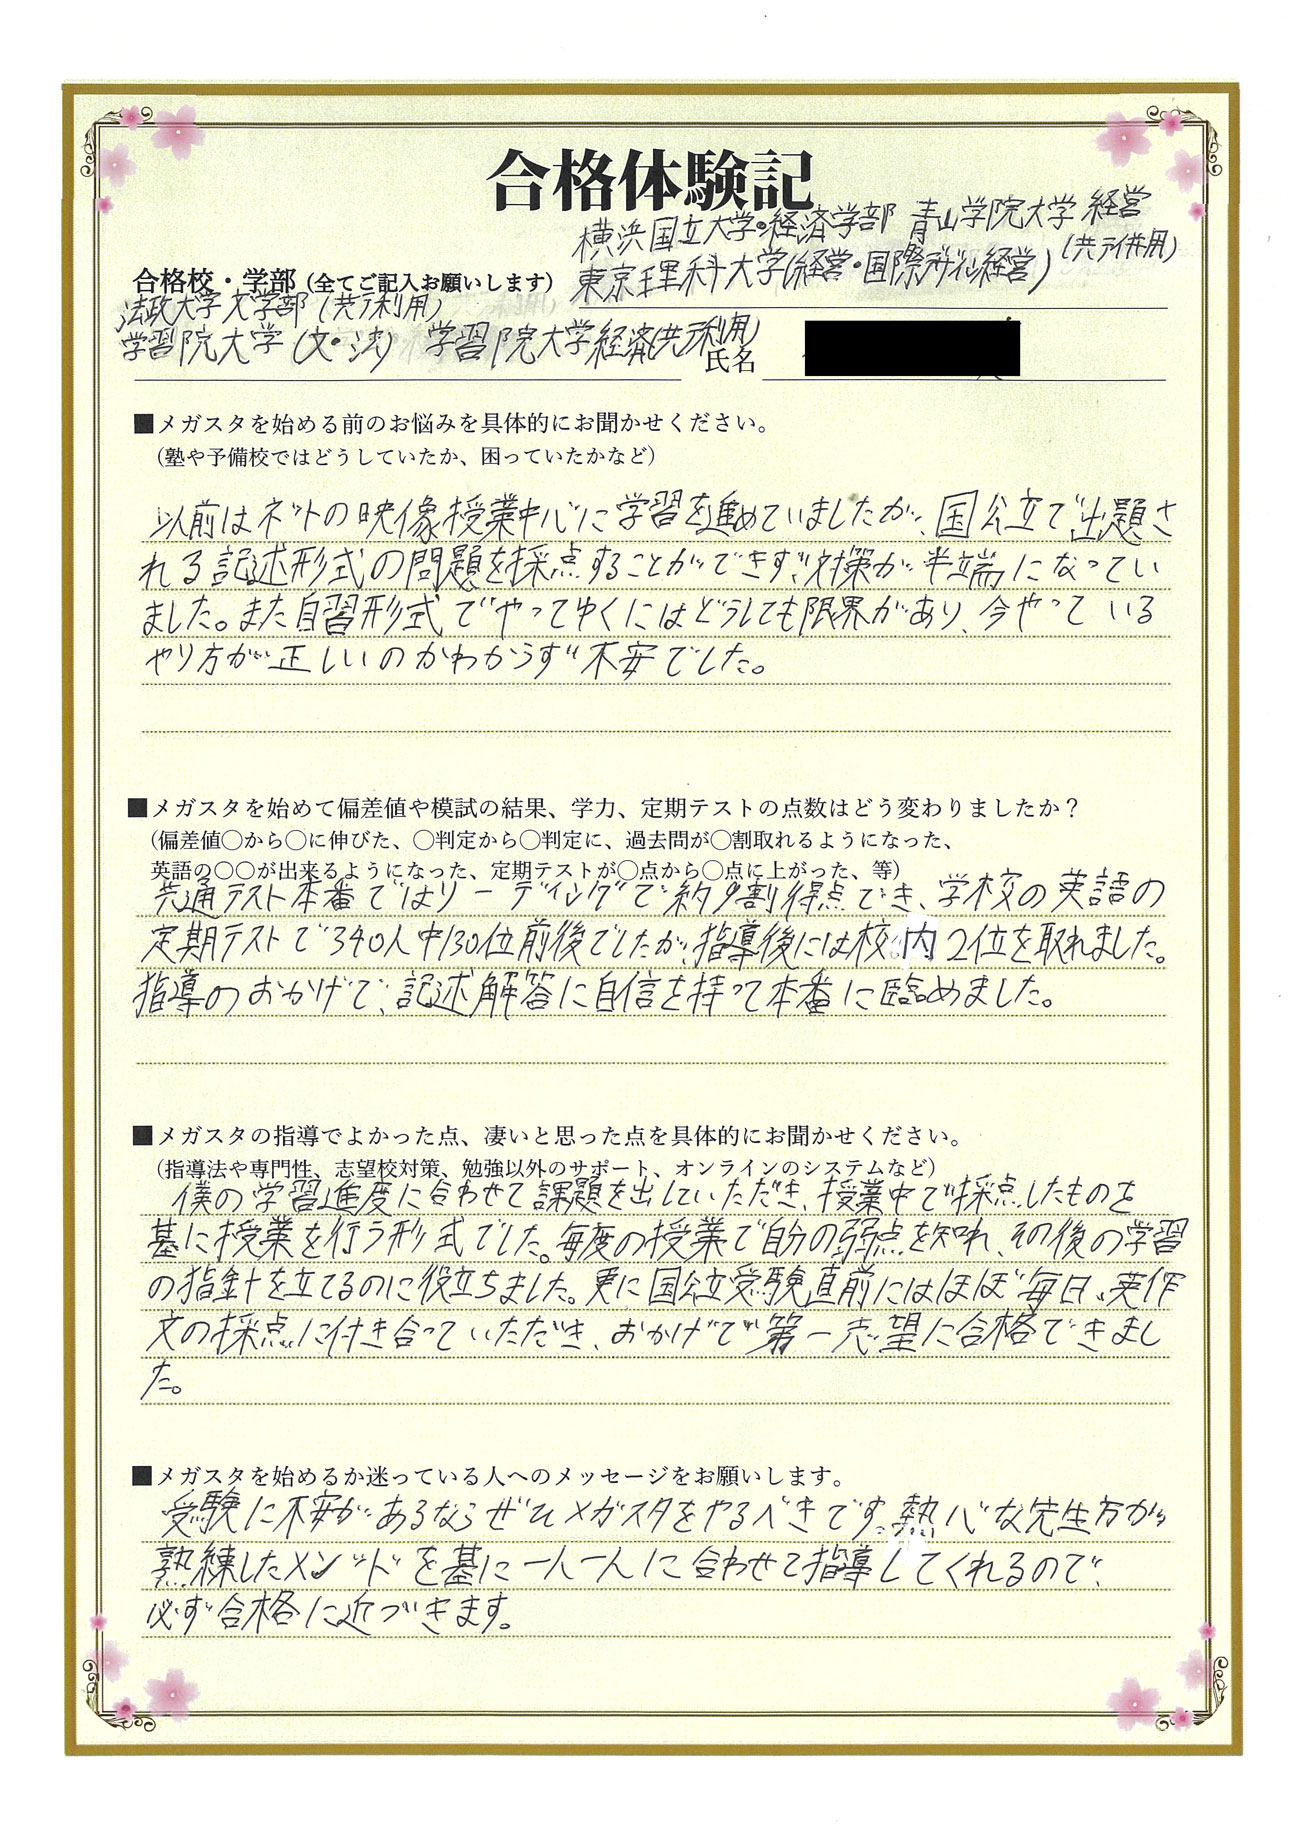 合格体験記
横浜国立大学・経済学部 青山学院大学 経営
(共テ併用)
合格校・学部(全てご記入お願いします)
東京理科大学(経営・国際デザイン経営)
法政大学文学部(共テ利用)
学習院大学(文・法) 学習院大学経済(共テ利用)
氏名
■メガスタを始める前のお悩みを具体的にお聞かせください。
(塾や予備校ではどうしていたか、困っていたかなど)
以前はネットの映像授業中心に学習を進めていましたが、国公立で出題さ
れる記述形式の問題を採点することができず、対策が半端になってい
ました。また自習形式でやってゆくにはどうしても限界があり、今やっている
やり方が正しいのかわからず不安でした。
■メガスタを始めて偏差値や模試の結果、学力、定期テストの点数はどう変わりましたか？
(偏差値〇から〇に伸びた、〇判定から〇判定に、過去問が〇割取れるようになった、
英語の〇〇が出来るようになった、定期テストが〇点から〇点に上がった、等)
共通テスト本番ではリーディングで約9割得点でき、学校の英語の
定期テストで340人中130位前後でしたが、指導後には校内2位を取れました。
指導のおかげで、記述解答に自信を持って本番に臨めました。
■メガスタの指導でよかった点、凄いと思った点を具体的にお聞かせください。
(指導法や専門性、志望校対策、勉強以外のサポート、オンラインのシステムなど)
僕の学習進度に合わせて課題を出していただき、授業中で採点したものを
基に授業を行う形式でした。毎度の授業で自分の弱点を知れ、その後の学習
の指針を立てるのに役立ちました。更に国公立受験直前にはほぼ毎日、英作
文の採点に付き合っていただき、おかげで第一志望に合格できまし
た。
■メガスタを始めるか迷っている人へのメッセージをお願いします。
受験に不安があるならぜひメガスタをやるべきです。熱心な先生方が
熟練したメソッドを基に一人一人に合わせて指導してくれるので、
必ず合格に近づきます。